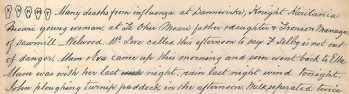 Many deaths from influenza. at Dannevirke, Knight Haritania
Mear young woman; at Te Ohu Mear father & daughter & Fronson Manager
of sawmill. Welwood. Mr Pore called this afternoon to say F Selby is not out
of danger. Mam & Eva came up this morning and soon went back to Elbe.
Mam was with her last night, rain last night wind tonight.
John ploughing turnip paddock in the afternoon. Milk separated twice